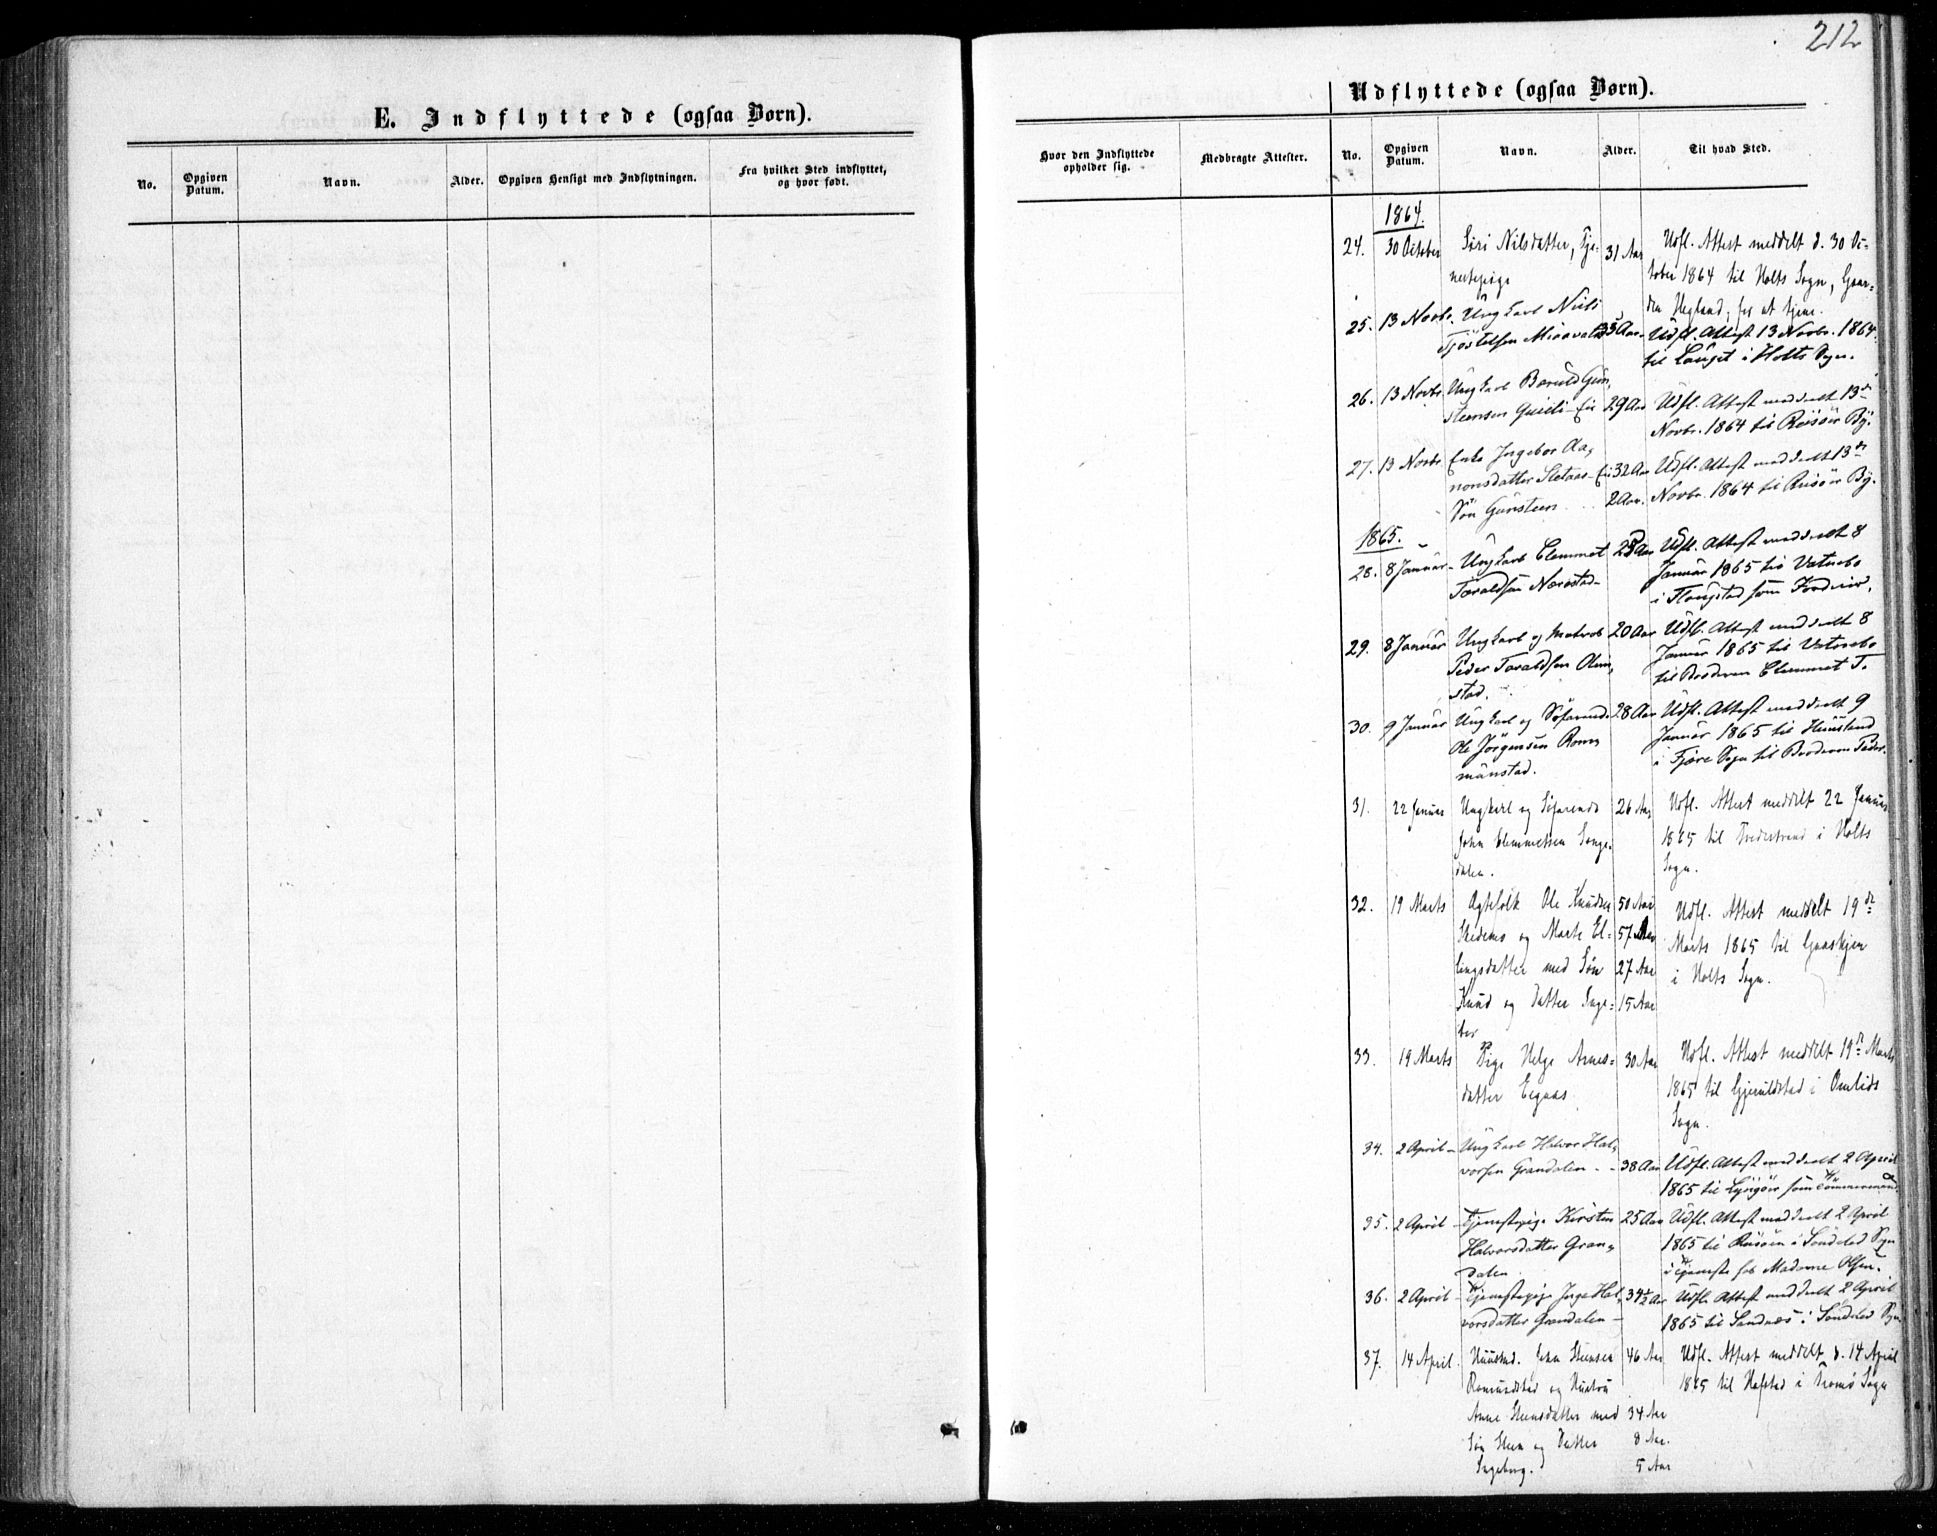 212
E. Indflyttede (ogsaa Børn).
No.
Opgiven Datum.
Navn.
Alder.
Opgiven Hensigt med Indflytningen.
Fra hvilket Sted indflyttet, og hvor født.
Udflyttede (ogsaa Børn).
Hvor den Indflyttede opholder sig.
Medbragte Attester.
No.
Opgiven Datum.
Navn.
Alder.
Til hvad Sted.
1864.
24. 30 October Siri Nilsdatter, Tje- 31 Aar Udfl. Attest meddelt d. 30 Oc-
nestepige tober 1864 til Holts Sogn, Gaar-
den Hegland, for at tjene.
25. 13 Novbr. Ungkarl Niels 33 Aar. Udfl. Attest 13 Novbr. 1864
Tjøstelsen til i Holts Sogn.
26. 13 Novbr. Ungkarl 29 Aar Udfl. Attest meddeelt 13de
Novbr. 1864 til Riisöer By.
27. 13 Novbr Enke Ingebor Aa- 32 Aar Udfl. Attest meddeelt 13de
nonsdatter 2 Aar. Novbr. 1864 til Riisöer By.
Sön Gunsteen
1865.
28. 8 Januar - Ungkarl Clemmet Aar Udfl. Attest meddeelt 8
Taraldsen Januar 1865 til Vatnebo
i som
29. 8 Januar Ungkarl og Matros 20 Aar Udfl. Attest meddeelt 8
Peder Taraldsen Januar 1865 til Vatnebo
stad. til Broderen Clemmet T.
30. 9 Januar Ungkarl og Söfarende 28 Aar Udfl. Attest meddeelt 9
Ole Jörgensen Rom- Januar 1865 til
munstad. i Fjære Sogn til Broderen Peder.
31. 22 Januar Ungkarl og Söfarende 26 Aar Udfl. Attest meddelt 22 Januar
John Clemmetsen Songe- 1865 til Tvedestrand i Holts
dalen. Sogn.
32. 19 Marts Ægtefolk Ole Knudsen 50 Aar Udfl. Attest meddelt 19de
og Marte El- 57 Aar Marts 1865 til Gaaskjen
lingsdatter med Søn 27 Aar i Holts Sogn.
Knud og Datter Inge- 15 Aar
bor
33. 19 Marts Pige Helge Arnes- 30 Aar Udfl. Attest meddelt 19de Marts
datter Eegaas 1865 til i Omlids
Sogn.
34. 2 April - Ungkarl Halvor Hal-
vorsen Grandalen - 38 Aar Udfl. Attest meddeelt 2 April
1865 til Lyngöer som Tömmermand
35. 2 April - Tjenestepige Kirsten 25 Aar Udfl. Attest meddeelt 2 April
Halvorsdatter Gran- 1865 til Riisöen i Söndeled Sogn
dalen. i Tjeneste hos Madame Olsen.
36. 2 April - Tjenestepige Inge Hal- 34½ Aar Udfl. Attest meddeelt 2 April
vorsdatter Grandalen - 1865 til Sandnæs i Söndeled Sogn
37. 14 April. Huusmd. John Steensen 46 Aar Udfl. Attest meddelt d. 14 April
Romundstad og Hustru 1865 til Hofstad i Tromö Sogn
Anne Steensdatter med 34 Aar
Søn Steen og Datter 8 Aar.
Ingeborg. 5 Aar